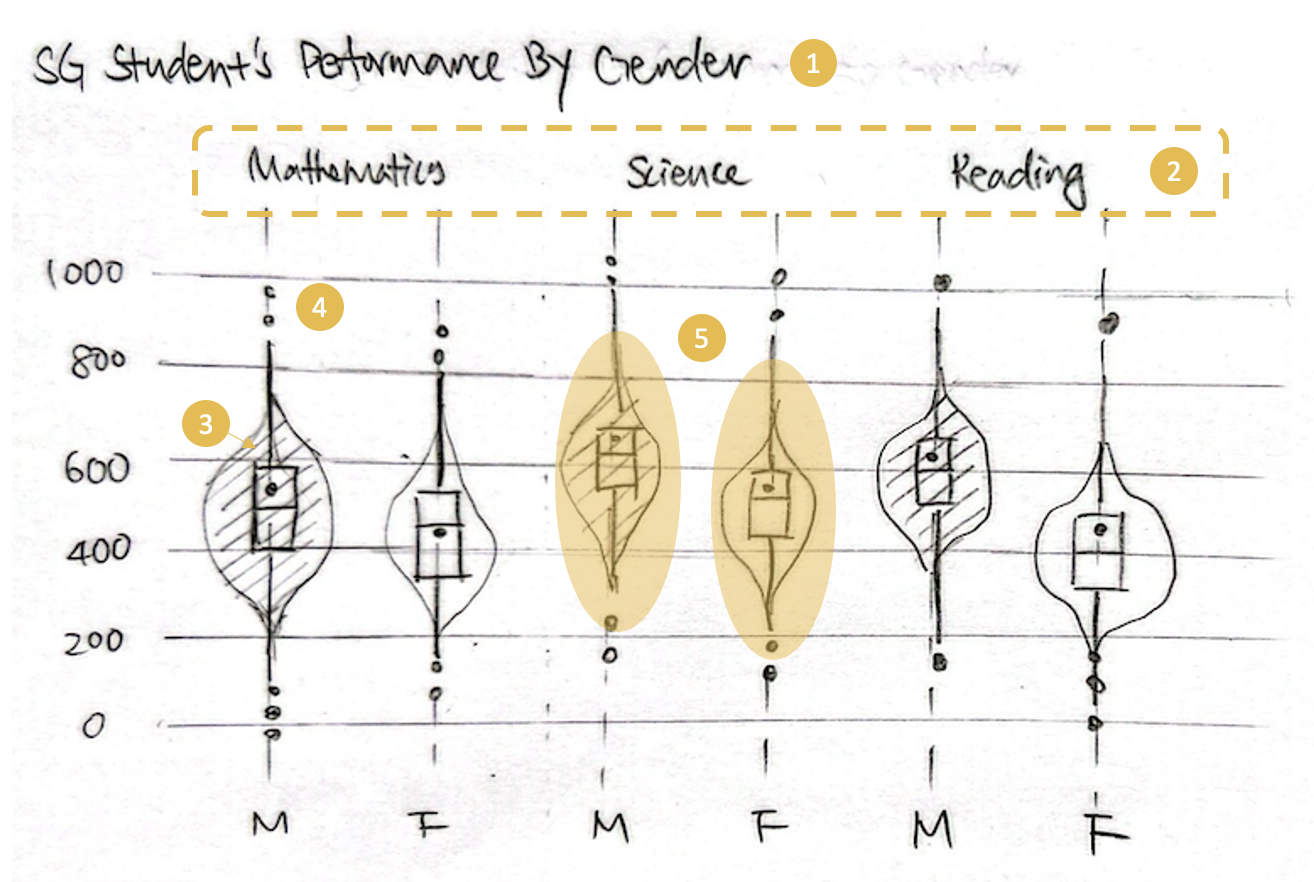 SG Student's Performance By Gender 1
Mathematics Science Reading 2
1000
4
800
5
3
600
400
200
0
M F M F M F